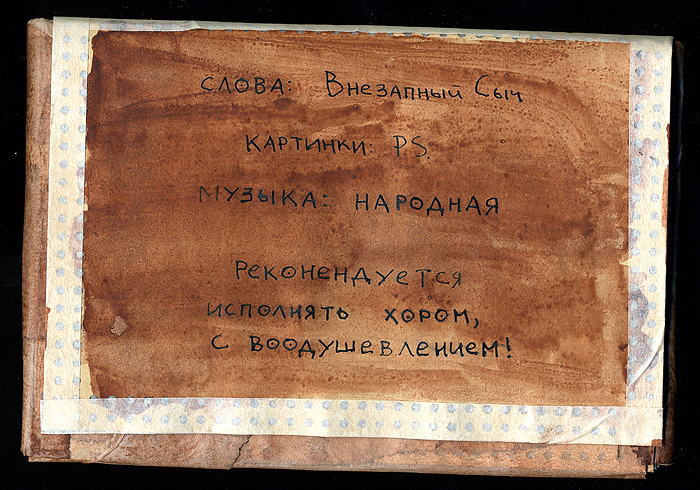 СЛОВА: Внезапный Сыч
КАРТИНКИ: P.S.
МУЗЫКА: НАРОДНАЯ
Реконендуется
исполнять хором,
с воодушевлением!